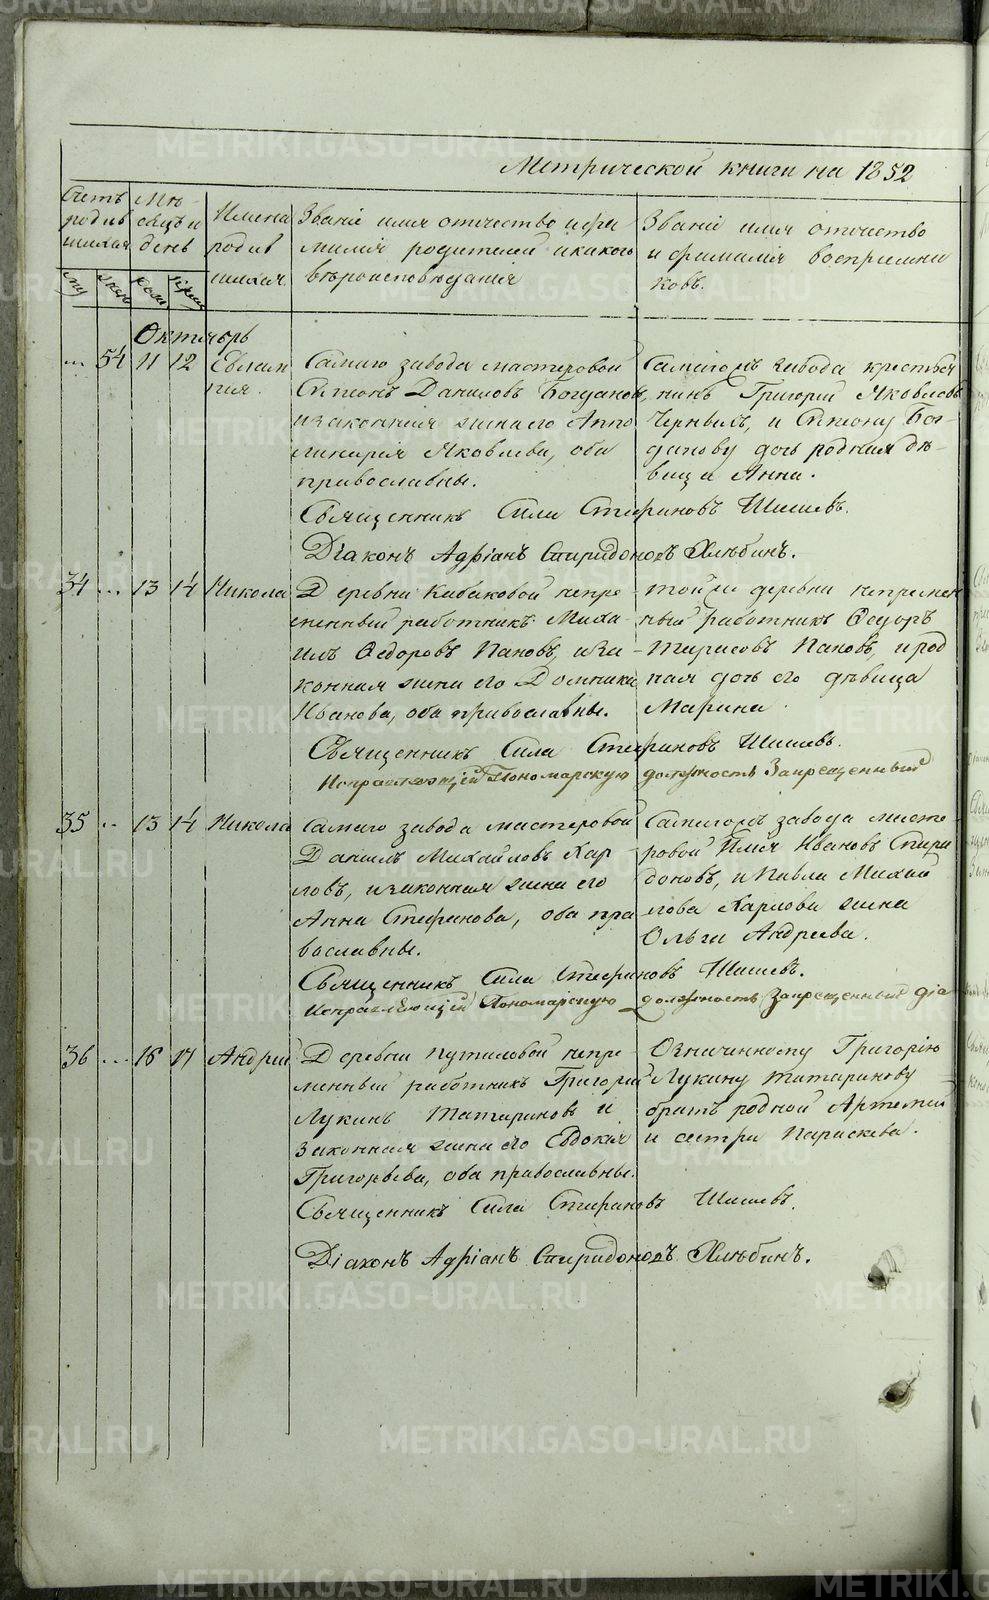 METRIKI.GASO-URAL.RU
Метрической книги на 1852
Счетъ родившихся
Мѣсяцъ и день
Имена родившихся.
Званіе имя отчество и фамилія родителей и какого вѣроисповѣданія
Званіе имя отчество и фамилія воспріемниковъ.
Октябрь
... 54 11 12 Евлампия.
Самаго завода мастеровой
Симеонъ Даниловъ Богдановъ,
и законная жена его Аппо-
линарія Яковлева, оба
православны.
Самагожъ завода крестья-
нинъ Григорій Яковлевъ
и Симеону Бог-
данову дочь родная дѣ-
вица Анна.
Священникъ Сила Стефановъ Шишевъ.
Діаконъ Адріанъ Спиридоновъ Хлѣбинъ.
34 ... 13 14 Никола
Деревни Кабаковой непре-
менный работникъ Миха-
илъ Ѳедоровъ Пановъ, и за-
конная жена его Домника
Иванова, оба православны.
той же деревни непремен
ный работникъ Ѳедоръ
Тарасовъ Пановъ, и род
ная дочь его дѣвица
Марина.
Священникъ Сила Стефановъ Шишевъ.
Исправляющій Пономарскую должность Запрещенный
35 ... 13 14 Никола
Самаго завода мастеровой
Данилъ Михайловъ Кар-
ловъ, и законная жена его
Анна Стефанова, оба пра
вославны.
Самагожъ завода масте-
ровой Илья Ивановъ Спири
доновъ, и Павла Михай
лова Карлова жена
Ольга Андреева.
Священникъ Сила Стефановъ Шишевъ.
Исправляющій Пономарскую должность Запрещенный діа
36 ... 16 17 Андрей
Деревни Путиловой непре-
менный работникъ Григорій
Лукинъ Татариновъ и
законная жена его Евдокія
Григорьева, оба православны.
Означенному Григорію
Лукину Татаринову
братъ родной Артемий
и сестра Параскева.
Священникъ Сила Стефановъ Шишевъ.
Діаконъ Адріанъ Спиридоновъ Хлѣбинъ.